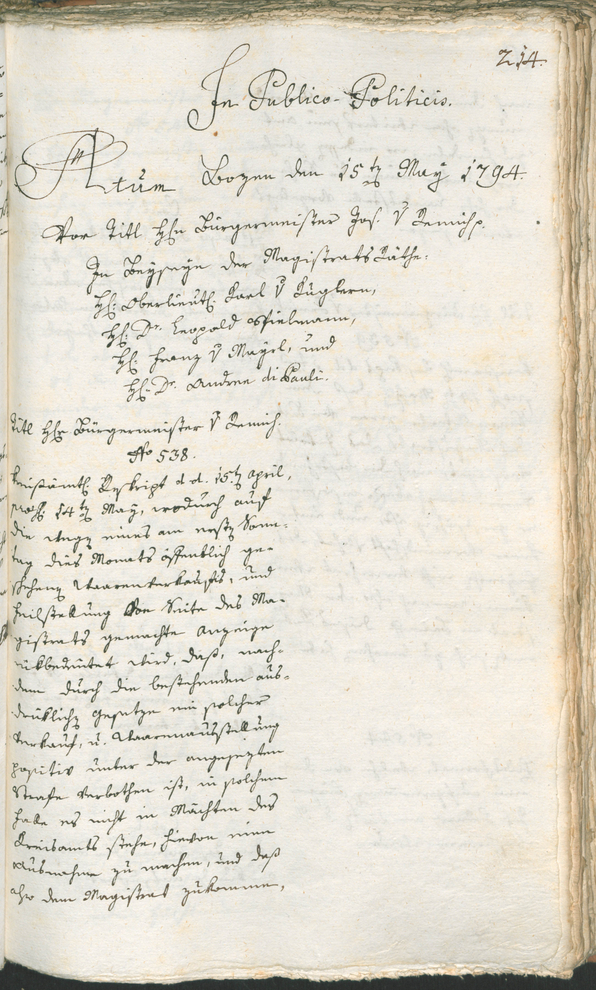 214.
In Publico-Politicis.
Actum Bozen den 15ten May 1794.
Vor Titl Hn Bürgermeister Jos. v Remich p.
In Beyseyn der Magistrats Räthe:
H: Oberlieut: Karl v Kuglern,
H: Dr. Leopold v Spielmann,
H: Franz v Mayrl, und
H: Dr. Andree di Pauli.
Titl Hn Bürgermeister v Remich.
No 538.
Kreisämtl: Reskript d. d. 15ten April,
14ten May, wodurch auf
die wegen eines am ersten Sonn-
tag dies Monats öffentlich ge-
schehenen Waarenverkaufs, und
Feilstellung von Seite des Ma-
gistrats gemachte Anzeige
rükbedeutet wird, daß, nach-
dem durch die bestehenden aus-
drüklichen Gesetze ein solcher
Verkauf, u. Waarenausstellung
positiv unter der angesezten
Strafe verbothen ist, in solchem
Falle es nicht in Mächten des
Kreisamts stehe, hievon eine
Ausnahme zu machen, und daß
also dem Magistrat zukomme,